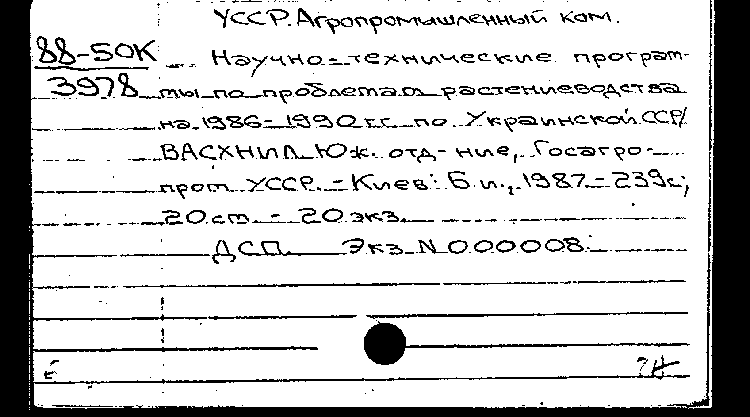 УССР. Агропромышленный ком.
88-50К
3978
Научно-технические програм-
мы по проблемам растениеводства
на 1986-1990 г.г. по Украинской ССР/
ВАСХНИЛ Юж. отд-ние, Госагро-
пром УССР. - Киев: Б.и., 1987. - 239 с;
20 см. - 20 экз.
ДСП. Экз N 000008.